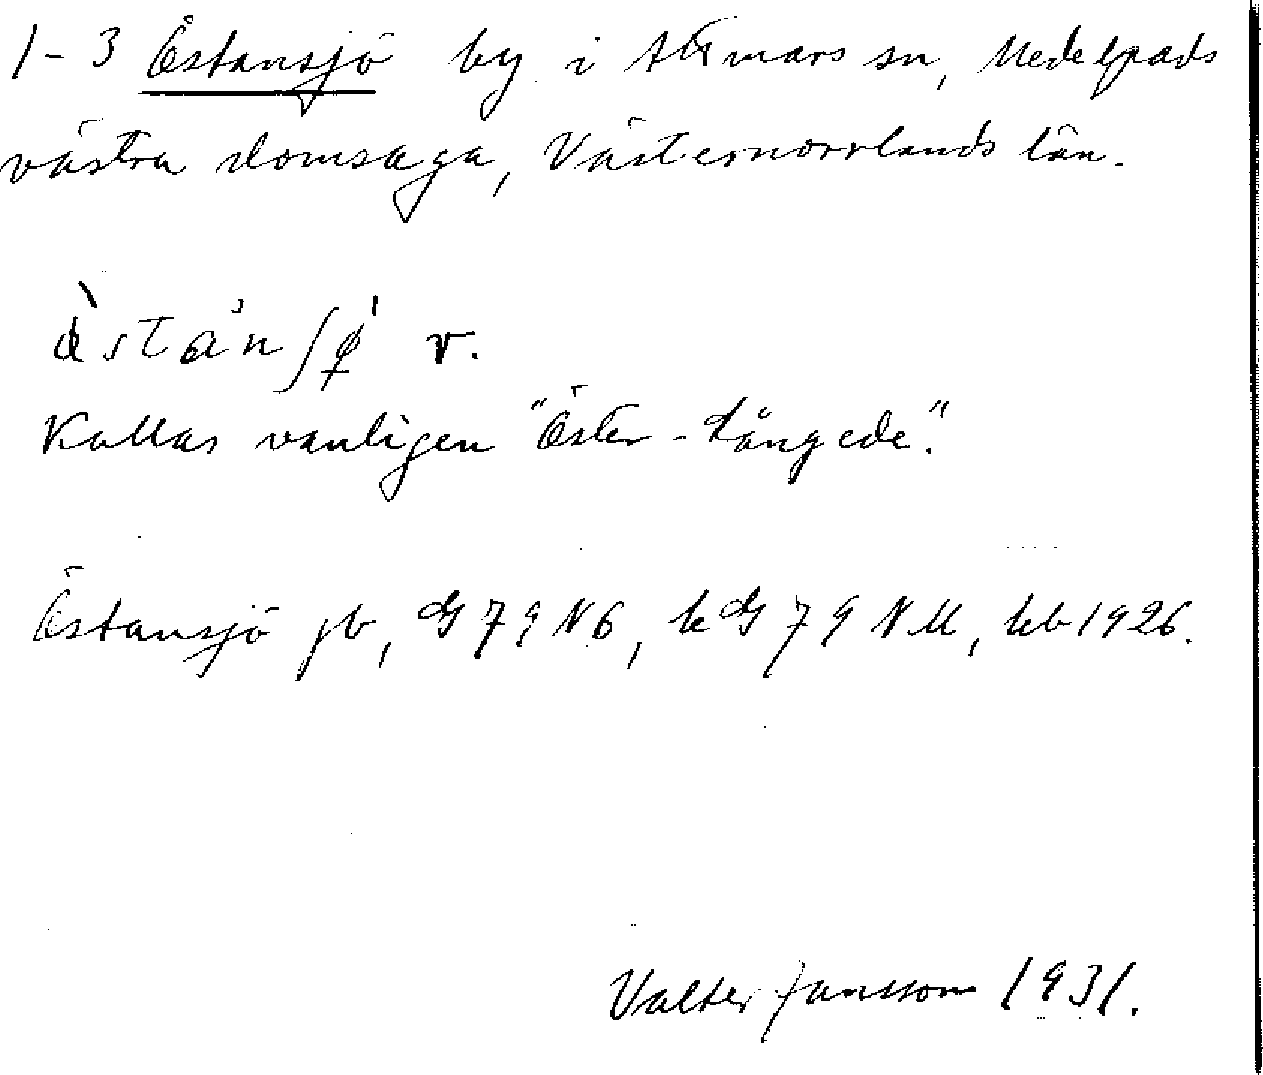 1-3 Östansjö by i Attmars sn, Medelpads
västra domsaga, Västernorrlands län.
v.
Kallas vanligen "Öster-Långede".
Östansjö jb, G 79 N6, kG 79 NM, kb 1926.
Valter Jansson 1931.